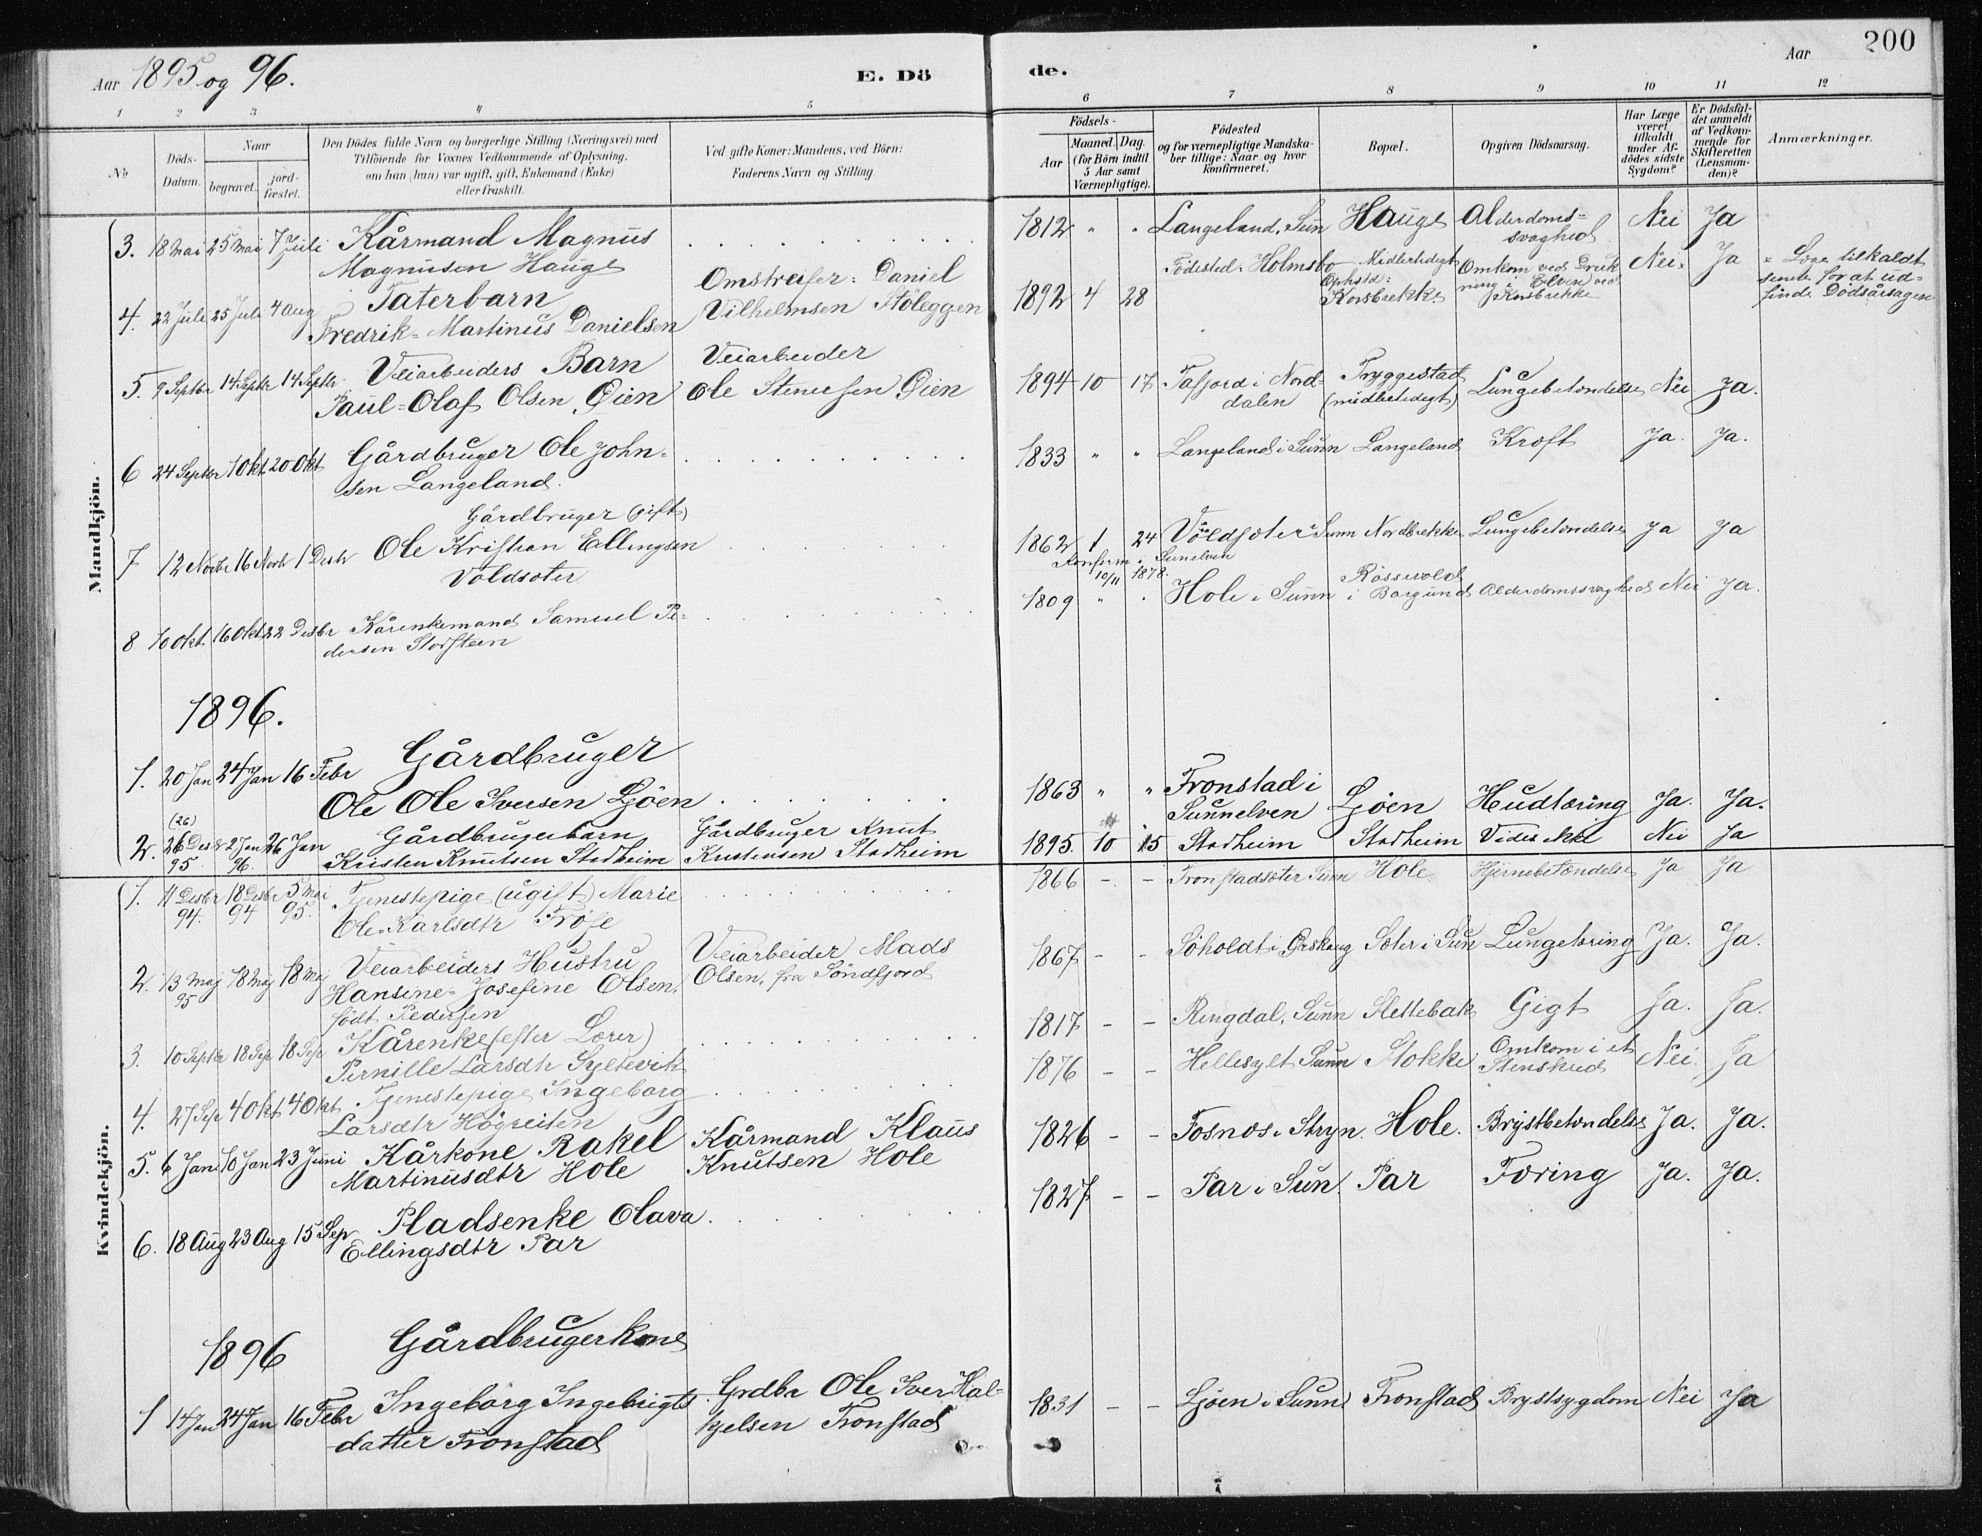 Aar 1895 og 96.
E. Dö
de.
Aar
200
1 2 3 4 5 6 7 8 9 10 11 12
No
Döds-
Datum.
Naar
begravet.
jord-
fæstet.
Den Dödes fulde Navn og borgerlige Stilling (Næringsvei) med
Tilföiende for Voxnes Vedkommende af Oplysning,
om han (hun) var ugift, gift, Enkemand (Enke)
eller fraskilt.
Ved gifte Koner: Mandens, ved Börn:
Faderens Navn og Stilling
Födsels-
Aar
Maaned. Dag.
(for Börn indtil
5 Aar samt
Værnepligtige).
Födested
og for værnepligtige Mandska-
ber tillige: Naar og hvor
konfirmeret.
Bopæl.
Opgiven Dödsaarsag.
Har Læge
været
tilkaldt
under Af-
dödes sidste
Sygdom?
Er Dödsfal-
det anmeldt
af Vedkom-
mende for
Skifteretten
(Lensman-
den)?
Anmærkninger.
Mandkjön.
3. 18 Mai 25 Mai 7 Juli Kårmand Magnus
Magnusen Hauge
1812 " " Langeland, Sun Hauge Alderdoms-
svaghed Nei Ja
4. 22 Juli 25 Juli 4 Aug Taterbarn
Fredrik-Martinus Danielsen
Omstreifer: Daniel
Vilhelmsen Stöleggen
1892 4 28 Födested: Holmsbo Midlertidigt
Ophold:
Korsbrekke
Omkom ved Druk-
ning i Elven ved
Korsbrekke Nei x Ja
x Læge tilkaldt
senere for at ud-
finde Dödsårsagen
5. 9 Septbr 14 Septbr 14 Septbr Veiarbeiders Barn
Paul-Olaf Olsen Öien
Veiarbeider
Ole Stenersen Öien
1894 10 17 Tafjord i Nord-
dalen
Tryggestad
(midlertidigt)
Lungebetændelse Nei Ja.
6 24 Septbr 1 Okt 20 Okt Gårdbruger Ole John-
sen Langeland.
1833 " " Langeland i Sunn Langeland Kræft Ja. Ja.
7 12 Novbr 16 Novb 1 Desbr Gårdbruger (gift)
Ole Kristian Ellingsen
Voldsæter
1862 1 24 Voldsæter i Sunn Nordbrekke Lungebetændelse Ja Ja
Konferm. i Sunelven
10/11 1878.
8 10 Okt 16 Okt 22 Desbr Kårenkemand Samuel Pe-
dersen Storsteen
1809 " " Hole i Sunn Rössevold
i Borgund Alderdomssvaghed Nei Ja.
1896.
1. 20 Jan 24 Jan 16 Febr Gårdbruger
Ole Ole Iversen Ljöen
1863 " " Tronstad i
Sunnelven Ljöen Hudtæring Ja. Ja.
2. (26)
26 Desbr 2 Jan 26 Jan
95. 96.
Gårdbrugerbarn
Kristen Knutsen Stadheim
Gårdbruger Knut
Kristensen Stadheim
1895. 10 15 Stadheim Stadheim Vides ikke Nei Ja
Kvindekjön.
1. 11 Desbr 18 Desbr 5 Mai
94. 94 95.
Tjenestepige (ugift) Marie
Ole-Karlsdtr Tröse
1866 - - Tronstadsæter Sunn Hole Hjernebetændelse Ja Ja
2. 13 Maj 18 Maj 18 Maj
95
Veiarbeiders Hustru
Hansine-Josefine Olsen,
födt Pedersen
Veiarbeider Mads
Olsen, fra Söndfjord
1867 - - Söholdt i Örskoug Sæter i Sun Lungetæring Ja. Ja.
3. 10 Septbr 18 Sep 18 Sep Kårenke (efter Lærer)
Pernille Larsdtr Syltevik
1817 - - Ringdal, Sunn Slettebak Gigt Ja. Ja.
4. 27 Sep 4 Okt 4 Okt Tjenestepige Ingeborg
Larsdtr Högreiten
1876 - - Hellesylt Sunn Stokke Omkom i et
Stenskred Nei. Ja
5. 6 Jan 10 Jan 23 Juni Kårkone Rakel
Martinusdtr Hole
Kårmand Klaus
Knutsen Hole
1826 - - Fosnæs i Stryn. Hole. Brystbetændelse Ja. Ja.
6. 18 Aug 23 Aug 15 Sep Pladsenke Olava
Ellingsdtr Par
1827 - - Par i Sun. Par Tæring Ja. Ja.
1896 Gårdbrugerkone
1 14 Jan 24 Jan 16 Febr Ingeborg Ingebrigts-
datter Tronstad
Grdbr Ole Iver Hal-
kjelsen Tronstad
1831 - - Ljöen i Sunn Tronstad Brystsygdom Nei Ja